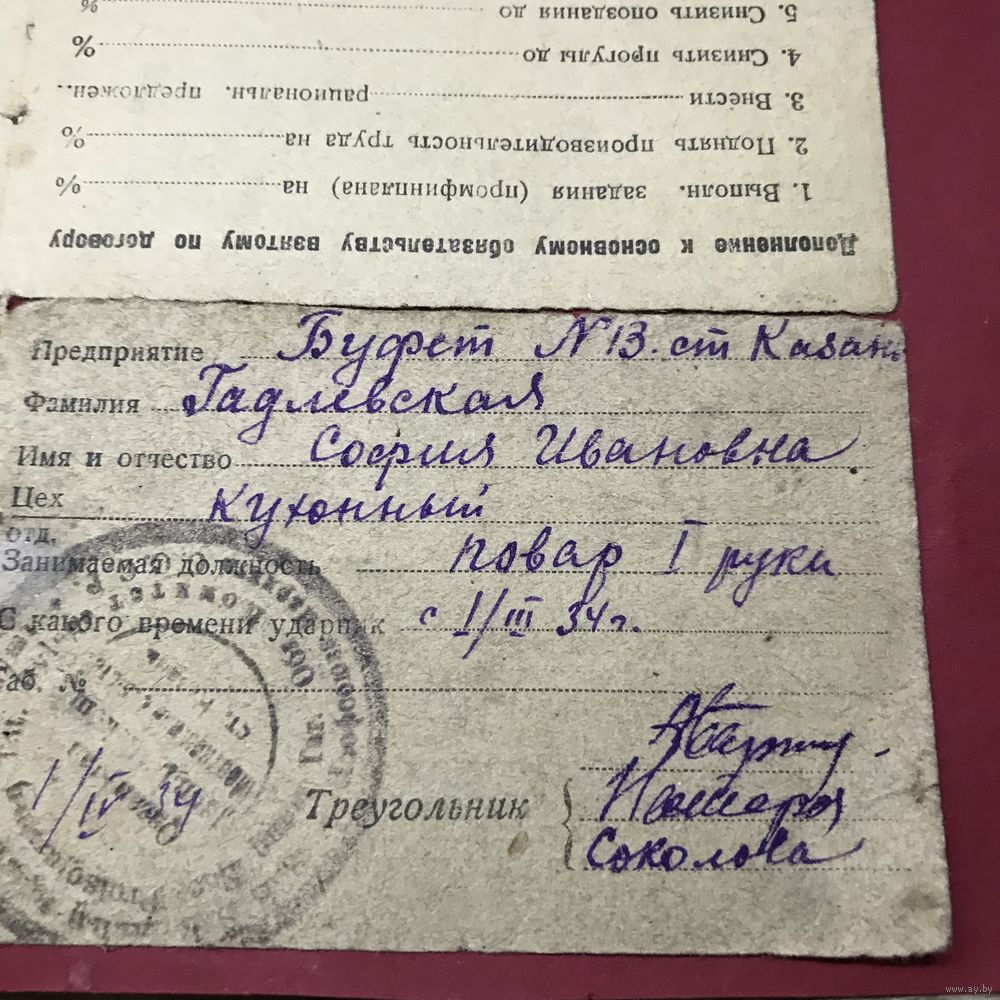 Дополнение к основному обязательству взятому по договору
1. Выполн. задания (промфинплана) на %
2. Поднять производительность труда на %
3. Внести рациональн. предложен.
4. Снизить прогулы до %
5. Снизить опоздания до %
Предприятие Буфет N 13. ст Казань
Фамилия Гадлевская
Имя и отчество София Ивановна
Цех Кухонный
отд.
Занимаемая должность повар I руки
С какого времени ударник с 1/III 34 г.
Таб. №
1/IV 34
Треугольник
Соколова
www.ay.by